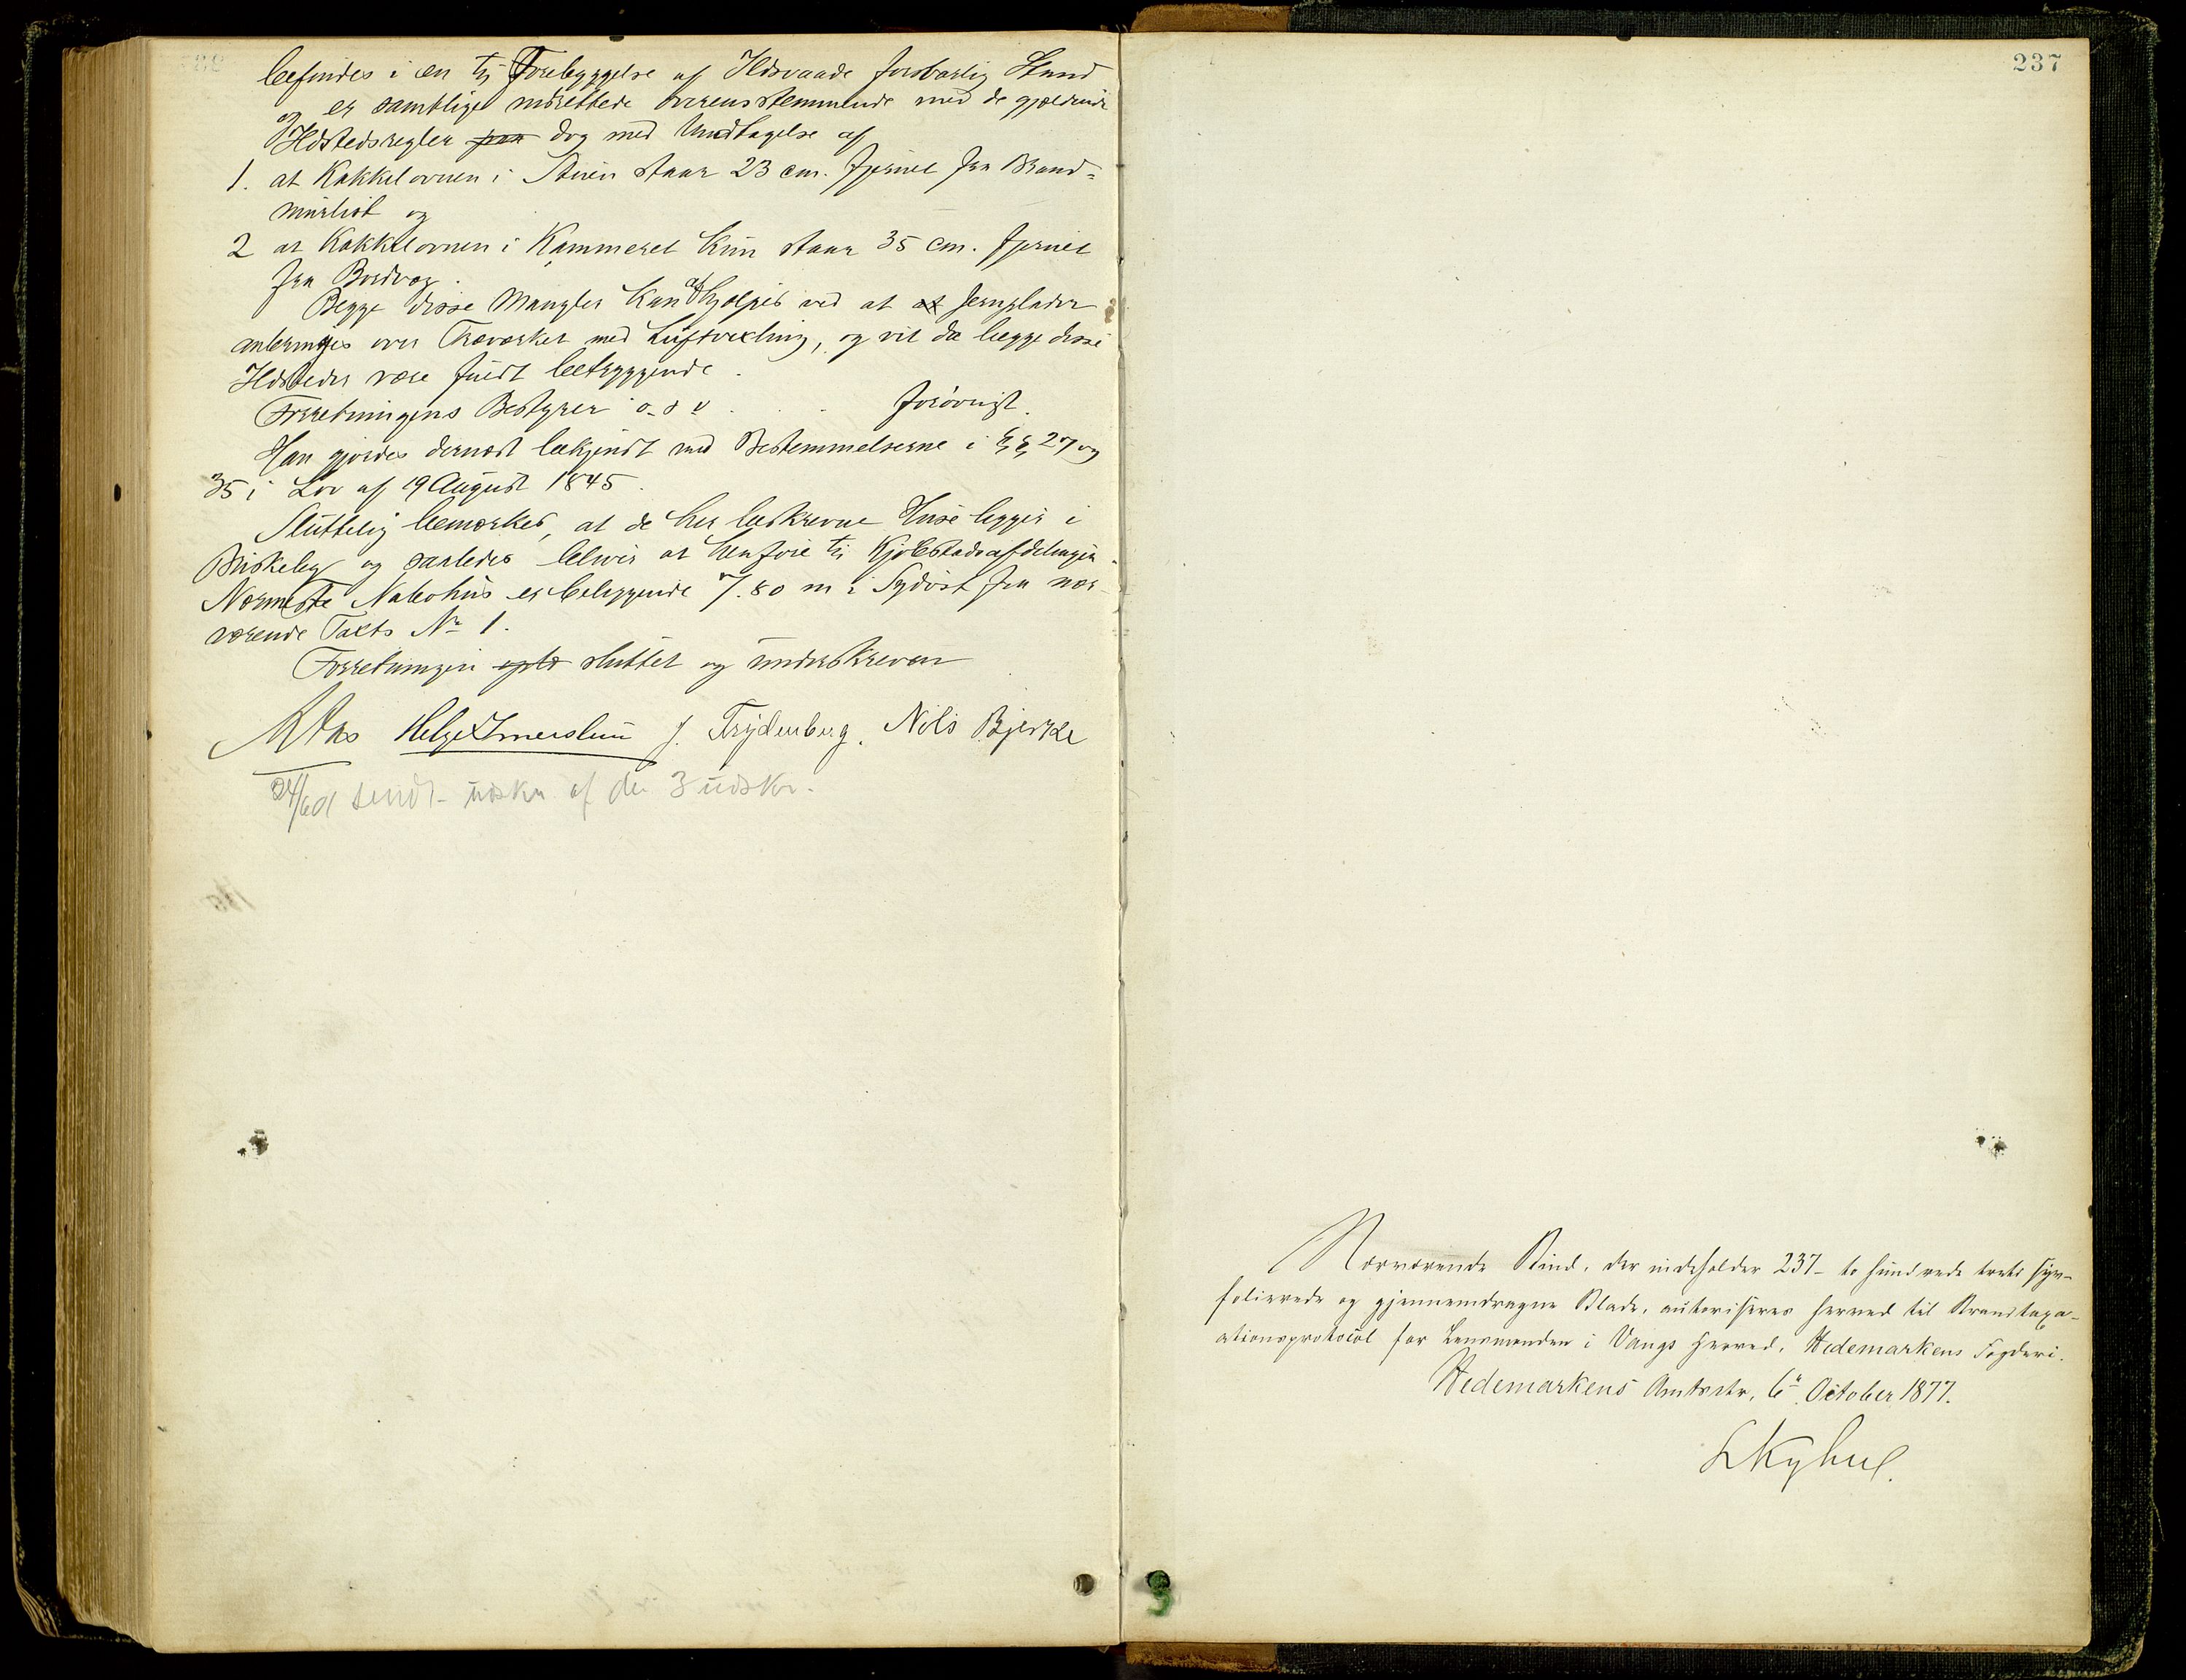 befindes i en til Forebyggelse af Ildsvaade forsvarlig Stand
og er samtlige indrettede overensstemmende med de gjældende
Ildstedsregler dog med Undtagelse af
1. at Kakkelovnen i Stuen staar 23 cm. fjernet fra Brand-
murlist og
2 at Kakkelovnen i Kammeret kun staar 35 cm. fjernet
fra Bordvæg.
Begge disse Mangler kan afhjælpes ved at at Jernplader
anbringes over Træværket med Luftvexling, og vil da begge disse
Ildsteder være fuldt betryggende.
Forretningens Bestyrer o. s v . . . forøvrigt.
Han gjordes dernæst bekjendt med Bestemmelserne i §§ 27 og
35 i Lov af 19 August 1845.
Sluttelig bemærkes, at de her beskrevne Huse ligger i
Briskeby og saaledes bliver at henføre til Kjøbstadsafdelingen.
Nærmeste Nabohus er beliggende 7.80 m i Sydøst fra nær-
værende Taxts No 1.
Forretningen sluttet og underskreven
Helge Imerslun J. Frydenberg. Nils Bjerke
sendt udskr af de 3 udskr.
237
Nærværende Bind, der indeholder 237 - to hundrede treti syv -
folierede og gjennemdragne Blade, autoriseres herved til Brandtaxa-
ationsprotocol for Lensmanden i Vangs Herred, Hedemarkens Fogderi.
Hedemarkens Amtsstr, 6te October 1877.